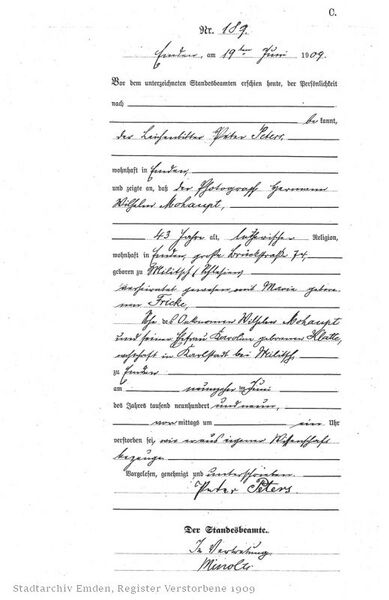 C.
Nr. 189.
Emden, am 19ten Juni 1909.
Vor dem unterzeichneten Standesbeamten erschien heute, der Persönlichkeit
nach
be kannt,
der Leichenbitter Peter Peters,
wohnhaft in Emden,
und zeigte an, daß der Photograph Hermann
Wilhelm Mohaupt,
43 Jahre alt, lutherischer Religion,
wohnhaft in Emden, große Brückstraße 74
geboren zu Militsch, Schlesien,
verheiratet gewesen mit Maria gebore-
nen Fricke,
Sohn des Oekonomen Wilhelm Mohaupt
und seiner Ehefrau Karoline geborenen Klatte,
wohnhaft in Karlstadt bei Militsch,
zu Emden
am neunzehnten Juni
des Jahres tausend neunhundert und neun,
vor mittags um ein Uhr
verstorben sei, wie er aus eigener Wissenschaft
bezeuge.
Vorgelesen, genehmigt und unterschrieben
Peter Peters
Der Standesbeamte.
In Vertretung
Stadtarchiv Emden, Register Verstorbene 1909